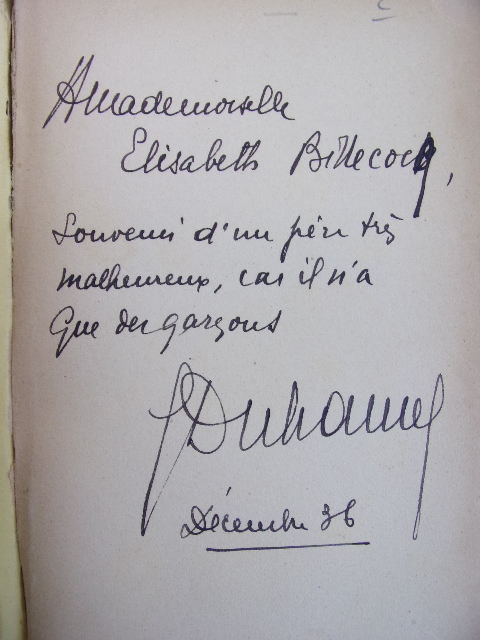 A Mademoiselle
Elisabeth Billecocq,
Souvenir d'un père très
malheureux, car il n'a
Que des garçons
GDuhamel
Décembre 36